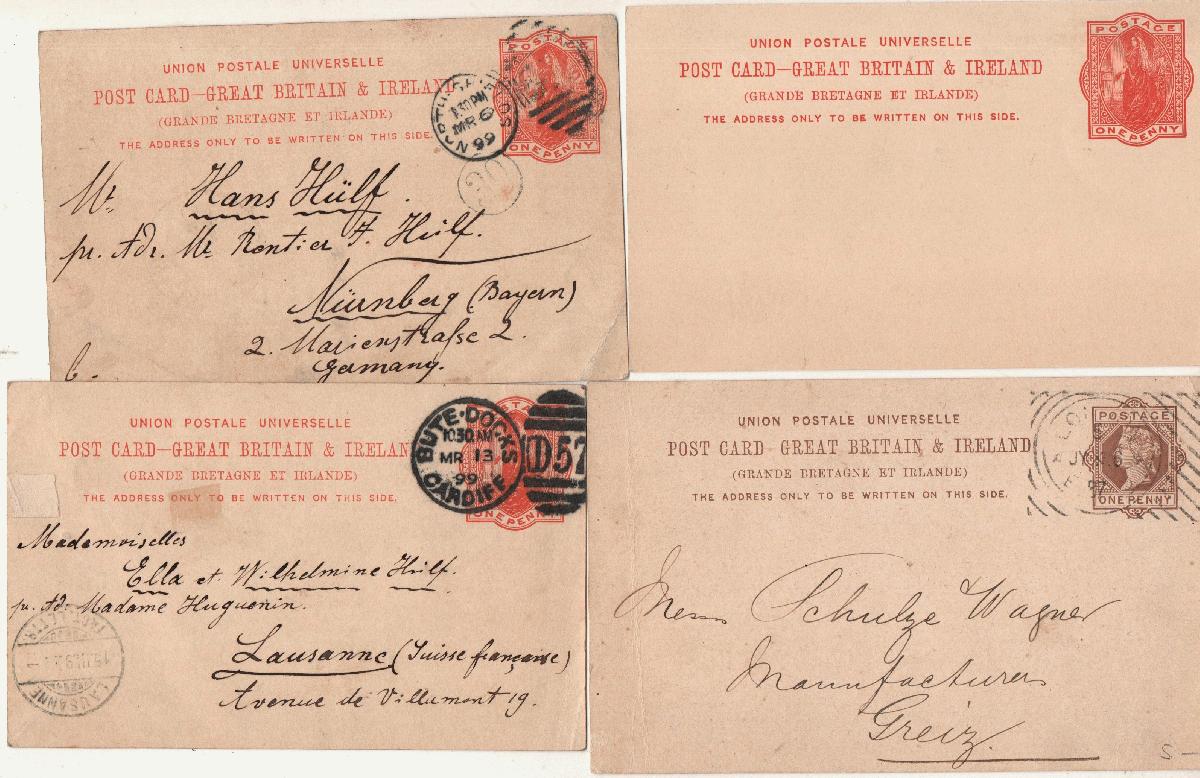 UNION POSTALE UNIVERSELLE
POST CARD—GREAT BRITAIN & IRELAND
(GRANDE BRETAGNE ET IRLANDE)
THE ADDRESS ONLY TO BE WRITTEN ON THIS SIDE.
POSTAGE
ONE PENNY
1.30PM
MR 6
99
Mr. Hans Hülf.
pr. Adr. Mr Rentier F. Hülf.
Nürnberg (Bayern)
2. Marienstraße 2.
Germany.
UNION POSTALE UNIVERSELLE
POST CARD—GREAT BRITAIN & IRELAND
(GRANDE BRETAGNE ET IRLANDE)
THE ADDRESS ONLY TO BE WRITTEN ON THIS SIDE.
POSTAGE
ONE PENNY
UNION POSTALE UNIVERSELLE
POST CARD—GREAT BRITAIN & IRELAND
(GRANDE BRETAGNE ET IRLANDE)
THE ADDRESS ONLY TO BE WRITTEN ON THIS SIDE.
ONE PENNY
BUTE·DOCKS
10.30AM
MR 13
99
CARDIFF
D57
Mademoiselles
Ella et Wilhelmine Hülf.
pr. Adr. Madame Huguenin.
Lausanne (Suisse française)
Avenue de Villamont 19.
LAUSANNE
UNION POSTALE UNIVERSELLE
POST CARD—GREAT BRITAIN & IRELAND
(GRANDE BRETAGNE ET IRLANDE)
THE ADDRESS ONLY TO BE WRITTEN ON THIS SIDE.
POSTAGE
ONE PENNY
Messrs Schulze Wagner
Manufacturers
Greiz.